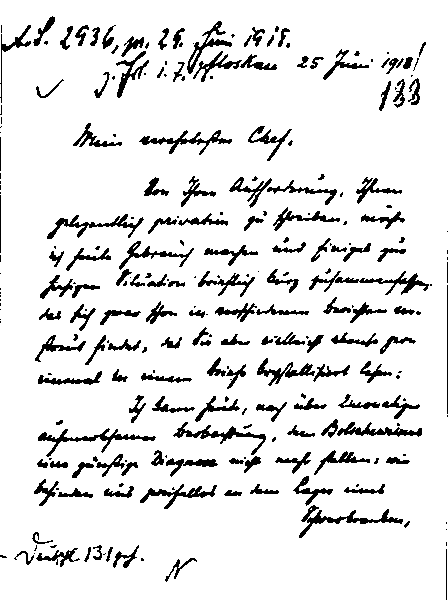 A.S. 2936, pr. 29. Juni 1918.
Moskau 25 Juni 1918
133
Mein verehrtester Chef,
Von Ihrer Aufforderung, Ihnen
gelegentlich privatim zu schreiben, möchte
ich heute Gebrauch machen und Einiges zur
hiesigen Situation brieflich kurz zusammenfassen,
das sich zwar schon in verschiedenen Berichten ver-
streut findet, das Sie aber vielleicht ebenso gern
einmal in einem Briefe krystallisiert lesen:
Ich kann heute, nach über 2 monatiger
aufmerksamer Beobachtung, dem Bolschewismus
eine günstige Diagnose nicht mehr stellen: wir
befinden uns zweifellos an dem Lager eines
Schwerkranken,
Deutschl. 131 geh.